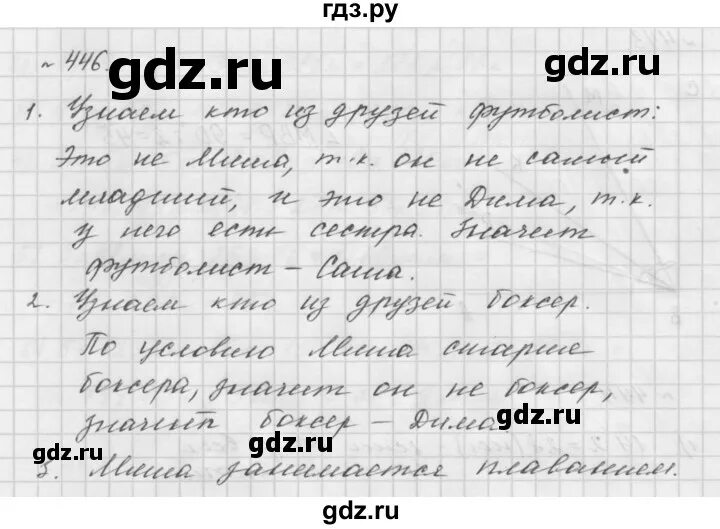 гдз.ру
№ 446.
gdz.ru
1. Узнаем кто из друзей футболист:
Это не Миша, т.к. он не самый
младший, и это не Дима, т.к.
у него есть сестра. Значит
футболист – Саша.
gdz.ru
2. Узнаем кто из друзей боксер.
По условию Миша старше
боксера, значит он не боксер,
значит боксер – Дима
3. Миша занимается плаванием.
gdz.ru